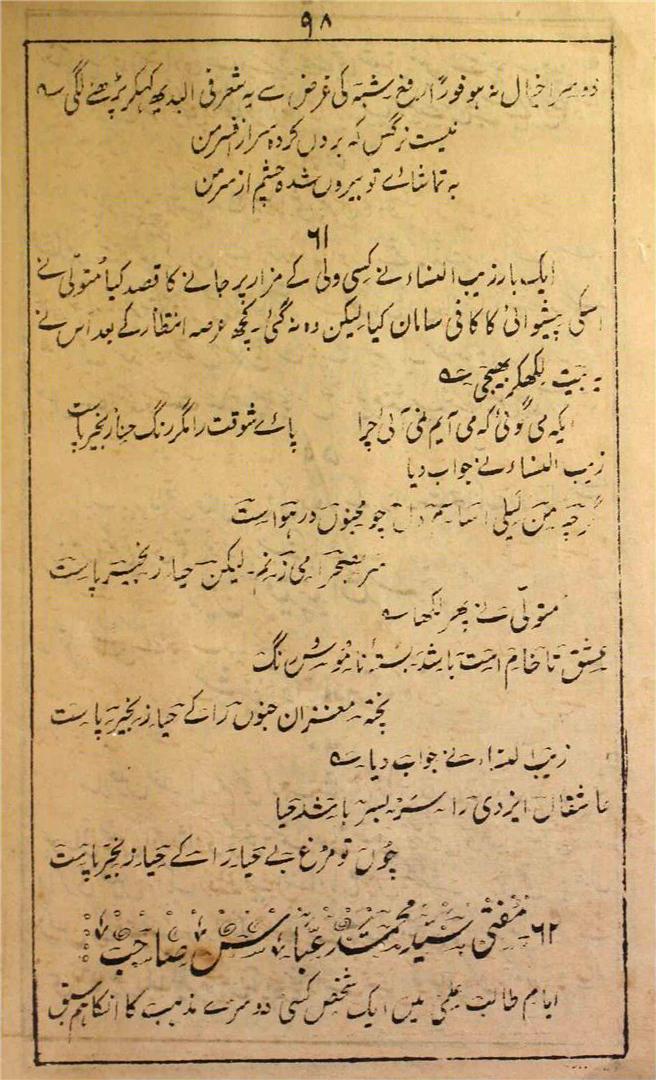 ۹۸
دوسرا خیال نہ ہو فوراً رفع شبہ کی غرض سے یہ شعر فی البدیہ کہکر پڑھنے لگی ؎
نیست نرگس کہ بروں کردہ سر از افسر من
بہ تماشاے تو بیروں شدہ چشم از سر من
۶۱
ایک بار زیب النساء نے کسی ولی کے مزار پر جانے کا قصد کیا متولّی نے
اسکی پیشوائی کا کافی سامان کیا لیکن وہ نہ گئی۔ کچھ عرصہ انتظار کے بعد اس نے
یہ بیت لکھکر بھیجی ؎
ایکہ می گوئی کہ می آیم نمی آئی چرا پاے شوقت را مگر رنگ حنا زنجیر پاست
زیب النساء نے جواب دیا
گرچہ من لیلی اساسم دل چو مجنوں در ہواست
سر بصحرا می زنم۔ لیکن حیا زنجیر پاست
متولّی نے پھر لکھا ؎
عشق تا خام است باشد بستۂ ناموس و ننگ
پختہ مغزان جنوں را کے حیا زنجیر پاست
زیب النساء نے جواب دیا ؎
عاشقان ایزدی را سربسر باشد حیا
چوں تو مرغ بے حیا را کے حیا زنجیر پاست
۶۲۔ مفتی سید محمد عباس صاحب
ایام طالب علمی میں ایک شخص کسی دوسرے مذہب کا انکا ہم سبق